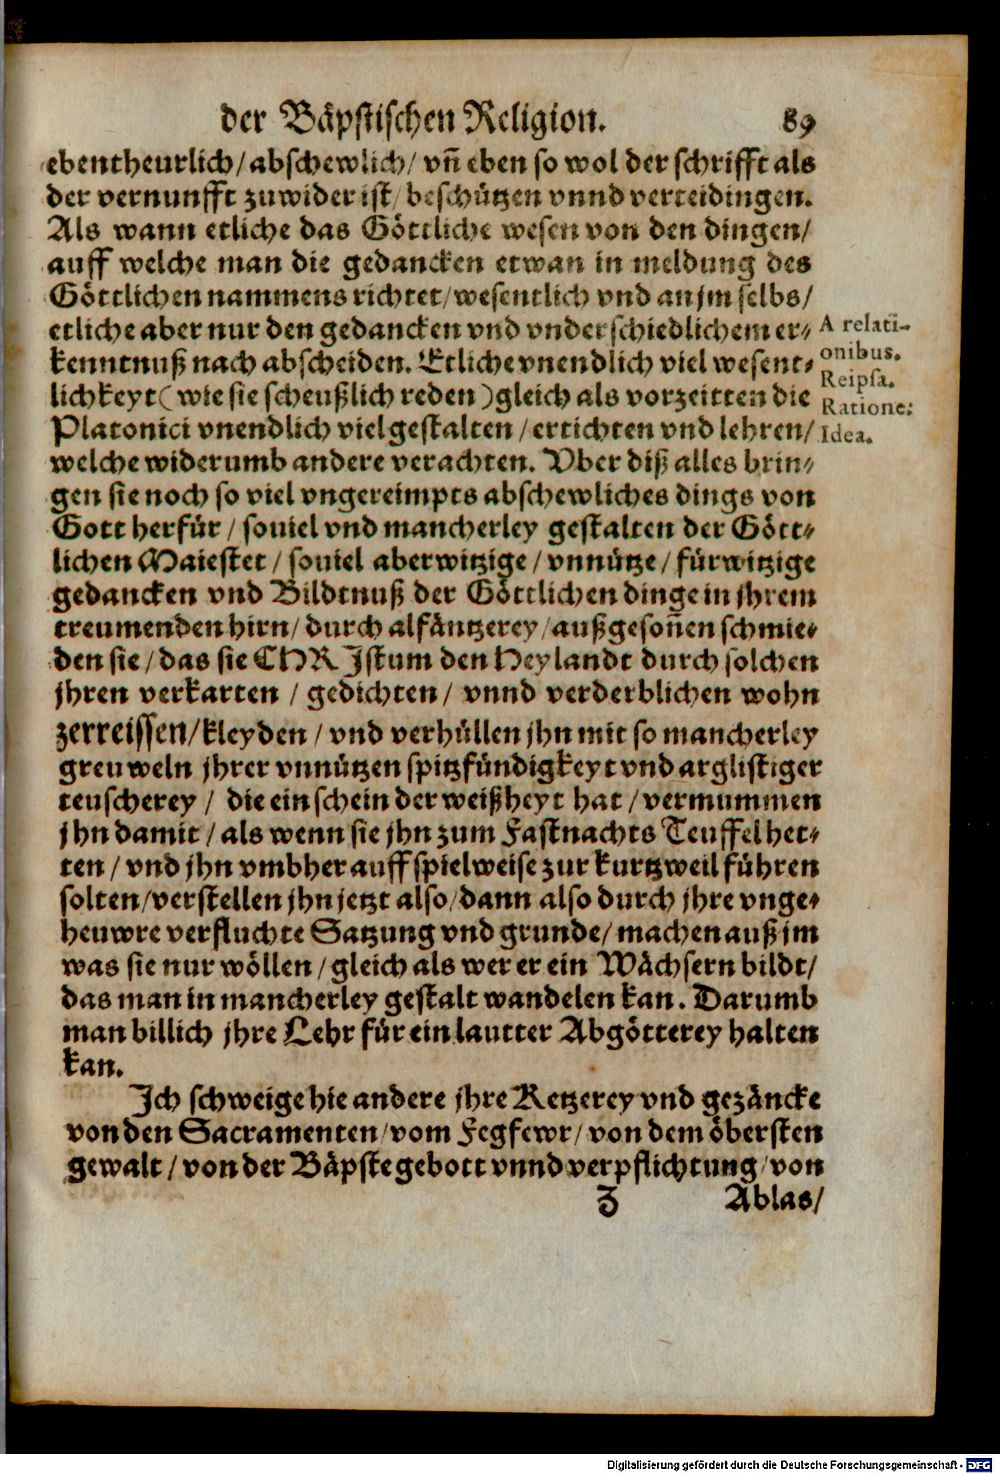 der Bäpstischen Religion. 89
ebentheurlich/ abschewlich/ vñ eben so wol der schrifft als
der vernunfft zuwider ist/ beschützen vnnd verteidingen.
Als wann etliche das Göttliche wesen von den dingen/
auff welche man die gedancken etwan in meldung des
Göttlichen nammens richtet/ wesentlich vnd an jm selbs/
etliche aber nur den gedancken vnd vnderschiedlichem er⸗
A relati-
kenntnuß nach abscheiden. Etliche vnendlich viel wesent⸗
onibus.
Reipsa.
lichkeyt (wie sie scheußlich reden) gleich als vorzeitten die
Ratione.
Platonici vnendlich viel gestalten/ ertichten vnd lehren/
Idea.
welche widerumb andere verachten. Vber diß alles brin⸗
gen sie noch so viel vngereimpts abschewliches dings von
Gott herfür/ souiel vnd mancherley gestalten der Gött⸗
lichen Maiestet/ souiel aberwitzige/ vnnütze/ fürwitzige
gedancken vnd Bildtnuß der Göttlichen dinge in jhrem
treumenden hirn/ durch alfäntzerey/ außgesoñen schmie⸗
den sie/ das sie CHRJstum den Heylandt durch solchen
jhren verkarten/ gedichten/ vnnd verderblichen wohn
zerreissen/ kleyden/ vnd verhüllen jhn mit so mancherley
greuweln jhrer vnnützen spitzfündigkeyt vnd arglistiger
teuscherey/ die ein schein der weißheyt hat/ vermummen
jhn damit/ als wenn sie jhn zum Fastnachts Teuffel het⸗
ten/ vnd jhn vmbher auff spielweise zur kurtzweil führen
solten/ verstellen jhn jetzt also/ dann also durch jhre vnge⸗
heuwre verfluchte Satzung vnd grunde/ machen auß jm
was sie nur wöllen/ gleich als wer er ein Wächsern bildt/
das man in mancherley gestalt wandelen kan. Darumb
man billich jhre Lehr für ein lautter Abgötterey halten
kan.
Jch schweige hie andere jhre Ketzerey vnd gezäncke
von den Sacramenten/ vom Fegfewr/ von dem öbersten
gewalt/ von der Bäpste gebott vnnd verpflichtung/ von
Z Ablas/
Digitalisierung gefördert durch die Deutsche Forschungsgemeinschaft - DFG